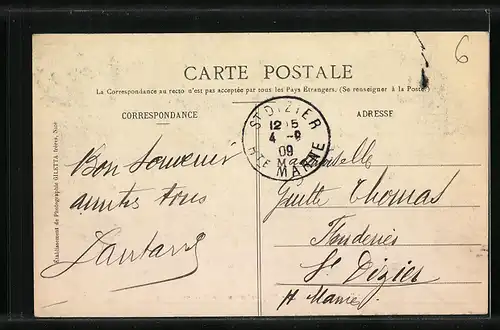 6
CARTE POSTALE
La Correspondance au recto n'est pas acceptée par tous les Pays Etrangers. (Se renseigner à la Poste)
CORRESPONDANCE
ADRESSE
ST DIZIER
12 15
4 -9
09
HTE MARNE
Etablissement de Photographie GILETTA frères, Nice
Bon Souvenir
tous
Thomas
St Dizier
Hte Marne